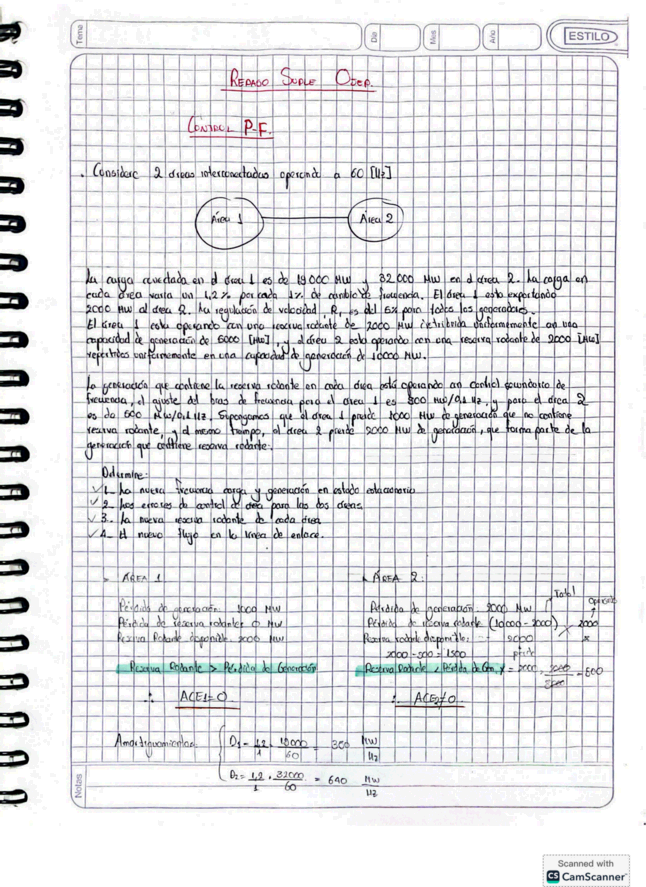 Tema
Dia
Mes
Ano
ESTILO
REPASO SUPLE OSEP.
CONTROL P-F.
. Considere 2 áreas interconectadas operando a 60 [Hz]
Área 1
Área 2
La carga conectada en el área 1 es de 19000 MW y 32.000 MW en el área 2. La carga en
cada área varía un 1,2% por cada 1% de cambio de frecuencia. El área 1 está exportando
2000 MW al área 2. La regulación de velocidad, R, es del 5% para todos los generadores.
El área 1 está operando con una reserva rodante de 2000 MW distribuida uniformemente en una
capacidad de generación de 6000 [MW], y el área 2 está operando con una reserva rodante de 2000 [MW]
repartidos uniformemente en una capacidad de generación de 10000 MW.
La generación que contiene la reserva rodante en cada área está operando con control secundario de
frecuencia, el ajuste del bias de frecuencia para el area 1 es 300 MW/0,1 Hz, y para el área 2
es de 600 MW/0,1 Hz. Supongamos que el área 1 pierde 1000 MW de generación que no contiene
reserva rodante, y al mismo tiempo, el área 2 pierde 2000 MW de generación, que forma parte de la
generación que contiene reserva rodante.
Determine:
✓ 1. La nueva frecuencia carga y generación en estado estacionario
✓ 2. Los errores de control de área para las dos áreas.
✓ 3. La nueva reserva rodante de cada área
✓ 4. El nuevo flujo en la línea de enlace.
ÁREA 1
Pérdida de generación: 1000 MW
Pérdida de reserva rodante: 0 MW
Reserva Rodante disponible: 2000 MW
Reserva Rodante > Pérdida de Generación
∴ ACE1=0
ÁREA 2:
Total
Operando
Pérdida de generación: 2000 MW
Pérdida de reserva rodante (10000-2000) 2000
Reserva rodante disponible: 2000 x
2000-500=1500 pierde
Reserva Rodante < Pérdida de Gen.
∴ ACE2≠0
Amortiguamientos:
D1 = 1,2/1 · 19000/60 = 380 MW/Hz
D2 = 1,2/1 · 32000/60 = 640 MW/Hz
Notas
Scanned with
CS CamScanner